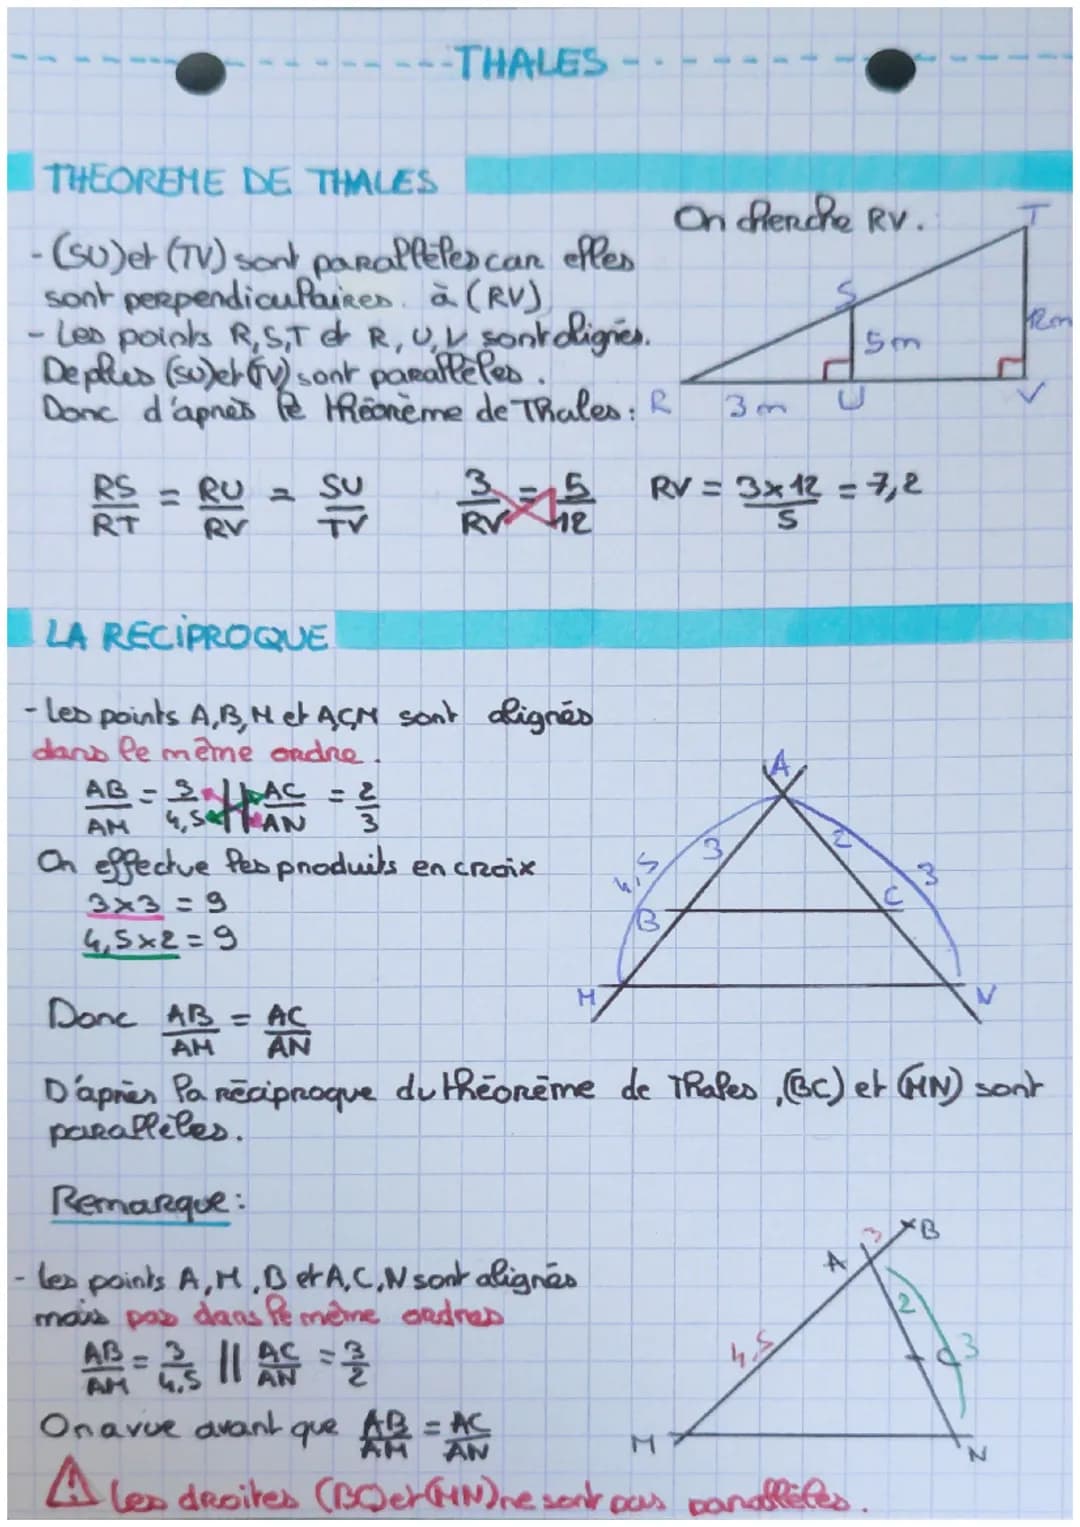 THALES
THEOREME DE THALES
On cherche RV.
- (SU) et (TV) sont parallèles car elles
sont perpendiculaires. à (RV)
- Les points R,S,T et R,U,V sont alignés.
De plus (SU) et (TV) sont parallèles.
Donc d'après le théorème de Thales :
T
S
12m
5m
R
3m
U
V
RS/RT = RU/RV = SU/TV
3/RV = 5/12
RV = 3x12/5 = 7,2
LA RECIPROQUE
- les points A,B,M et A,C,M sont alignés
dans le même ordre.
AB/AM = 3/4,5 || AC/AN = 2/3
On effectue les produits en croix
3x3 = 9
4,5x2 = 9
A
4,5
3
2
3
B
C
M
N
Donc AB/AM = AC/AN
D'après la réciproque du théorème de Thales, (BC) et (MN) sont
parallèles.
Remarque :
- les points A,M,B et A,C,N sont alignés
mais pas dans le même ordres
AB/AM = 3/4,5 || AC/AN = 3/2
On a vue avant que AB/AM = AC/AN
⚠ les droites (BC) et (MN) ne sont pas parallèles.
3
B
A
2
4,5
C
3
M
N